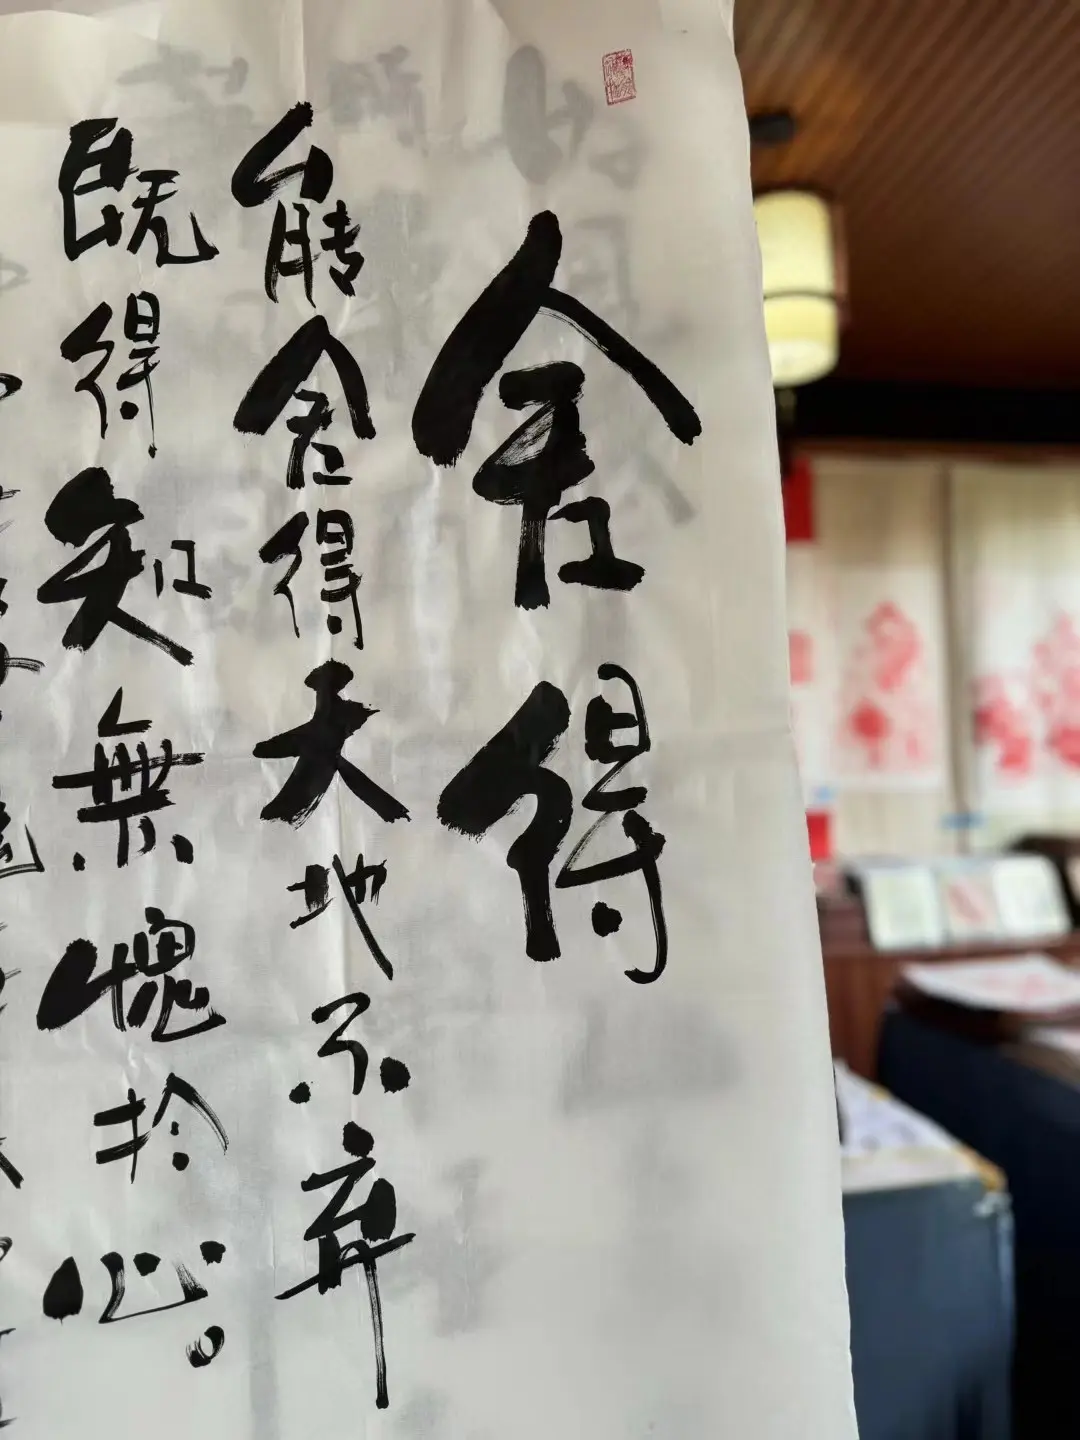 舍得
能舍得天地不弃
既得知無愧於心。